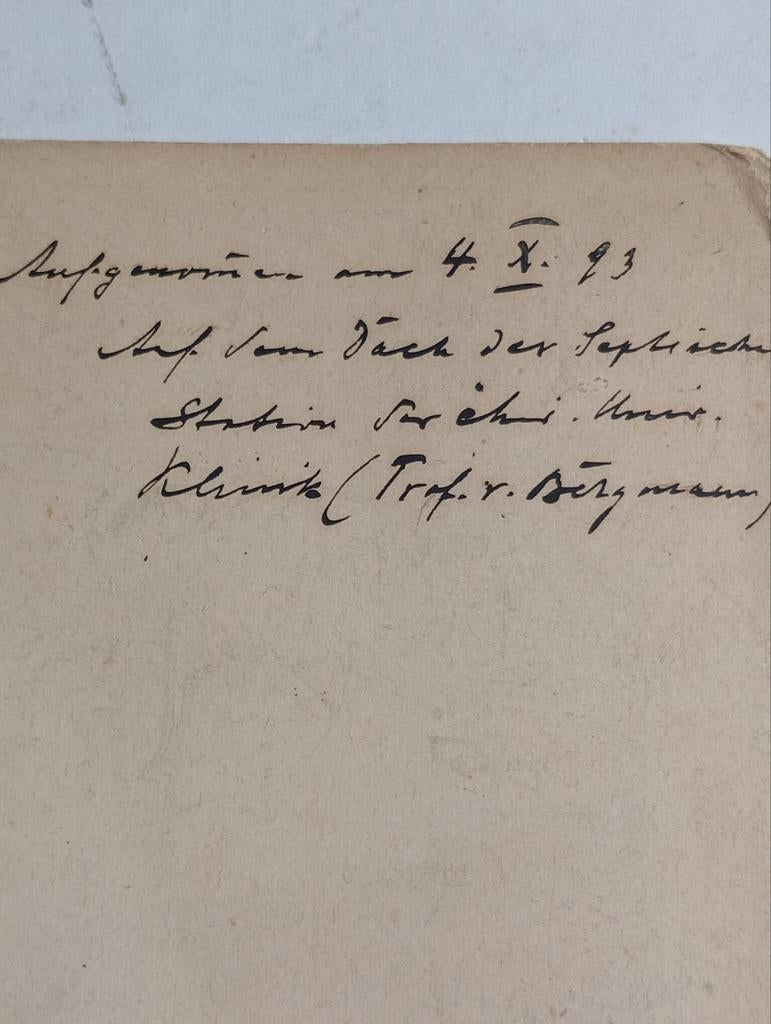 Aufgenom̄en am 4. X. 93
Auf dem Dach der Septische
Station der chir. Univ.
Klinik (Prof. v. Bergmann)